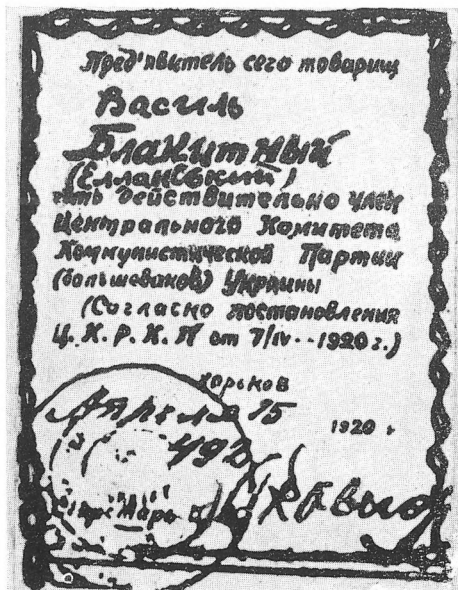 Пред'явитель сего товарищ
Василь
Блакитный
(Елланський)
есть действительно член
Центрального Комитета
Коммунистической Партии
(большевиков) Украины
(Согласно постановления
Ц. К. Р. К. П от 7/IV - 1920 г.)
Харьков
Апреля 15
1920 г
492